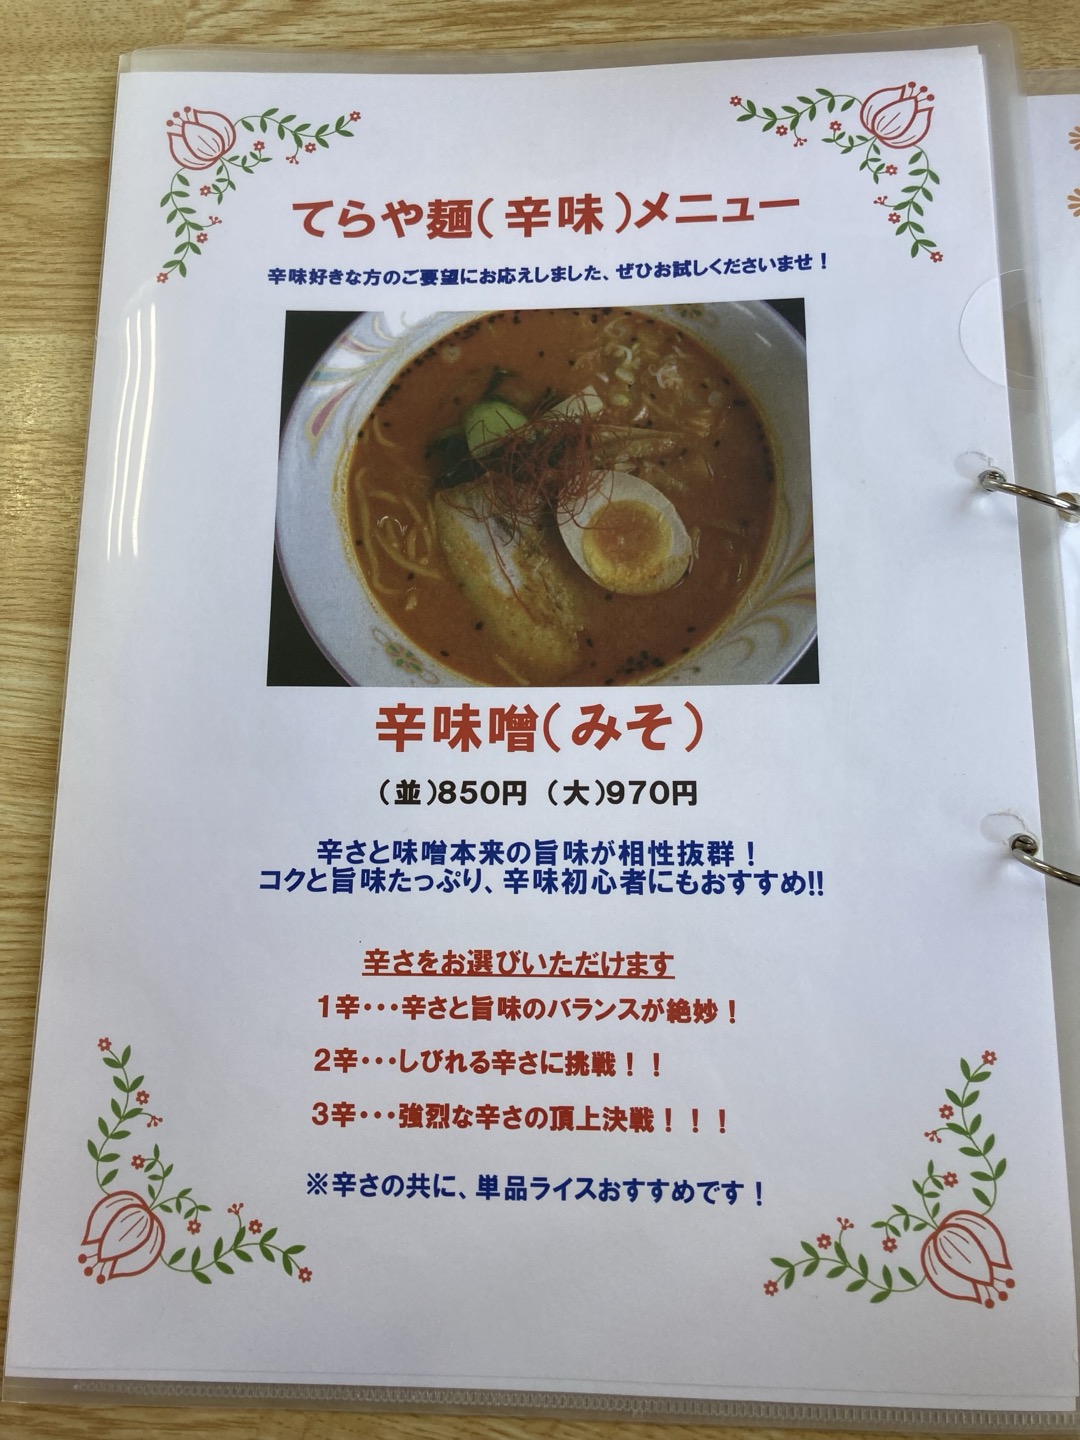 てらや麺(辛味)メニュー
辛味好きな方のご要望にお応えしました、ぜひお試しくださいませ！
辛味噌(みそ)
(並)850円 (大)970円
辛さと味噌本来の旨味が相性抜群！
コクと旨味たっぷり、辛味初心者にもおすすめ!!
辛さをお選びいただけます
1辛･･･辛さと旨味のバランスが絶妙！
2辛･･･しびれる辛さに挑戦！！
3辛･･･強烈な辛さの頂上決戦！！！
※辛さの共に、単品ライスおすすめです！